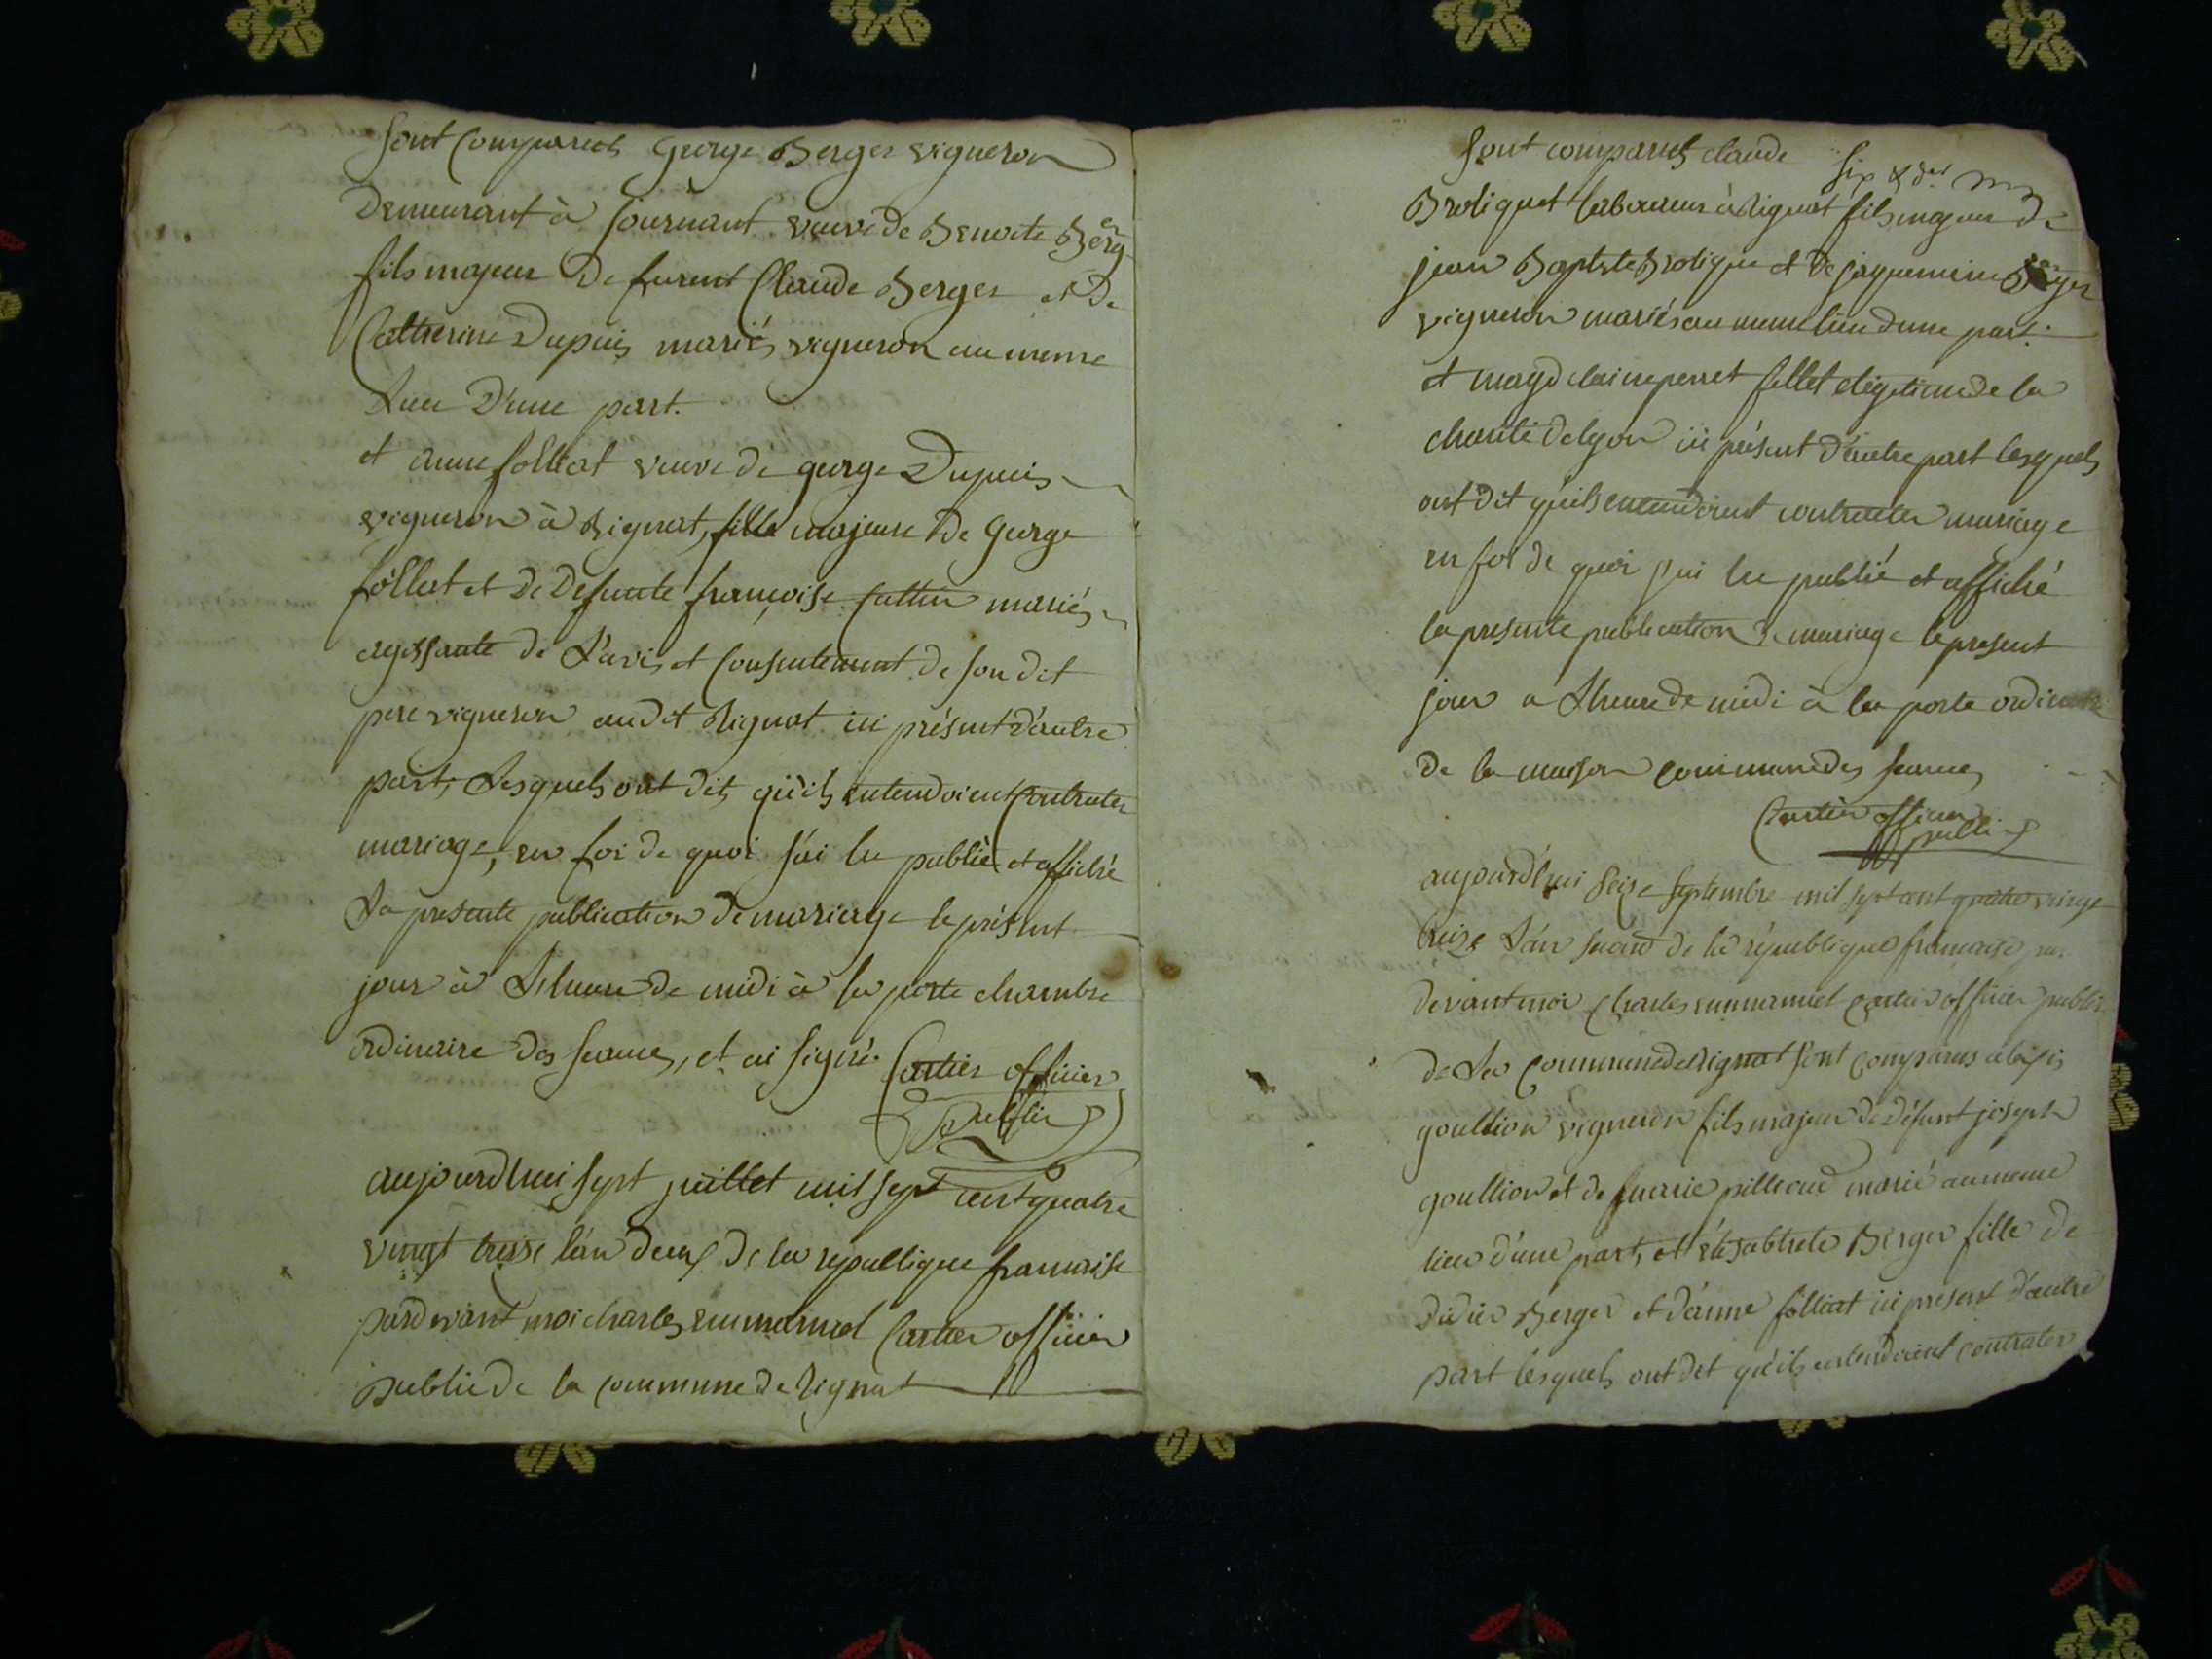 sont comparus George Berger vigneron
Demeurant à journant veuve de Benoite Berger
fils majeur de furent Claude Berger et de
Catherine Dupuis mariés vigneron au meme
Lieu D'une part.
et anne folliat veuve de george Dupuis
vigneron à Rignat, fille majeure de George
folliat et de Defunte françoise mariés
agissante de L'avis et Consentement de son dit
pere vigneron audit Rignat ici présent d'autre
part, Lesquels ont dits qu'ils entendoient Contrater
mariage, en foi de quoi j'ai lu publié et affiché
La presente publication de mariage le présent
jour à L'heure de midi à la porte chambre
ordinaire des seances, et ai signé. Cartier officier
Public
aujourdhui sept juillet mil sept cent quatre
vingt treise l'an deux de la republique francaise
pardevant moi charles emmanuel Cartier officier
public de la commune de Rignat
sont comparus claude
six &
Brotiquet laboureur à Rignat fils majeur de
jean Baptiste Brotique et de jaquemine Berger
vigneron mariés au meme lieu dune part.
et magdelaine perret de la
charité de lyon ici présent d'autre part lesquels
ont dit qu'ils entendoient contracter mariage
en foi de quoi j'ai lu publié et affiché
la presente publication de mariage le present
jour a Lheure de midi à la porte ordinaire
de la maison commune des seances
Cartier officier
public
aujourd'hui seize septembre mil sept cent quatre vingt
treize L'an second de la république francaise par
devant moi Charles emmanuel Cartier officier public
de La Commune de Rignat sont comparus
goullion vigneron fils majeur de défunt joseph
goullion et de marie marié au meme
lieu d'une part, et Berger fille de
didier Berger et d'anne folliat ici present d'autre
part lesquels ont dit qu'ils entendoient contrater